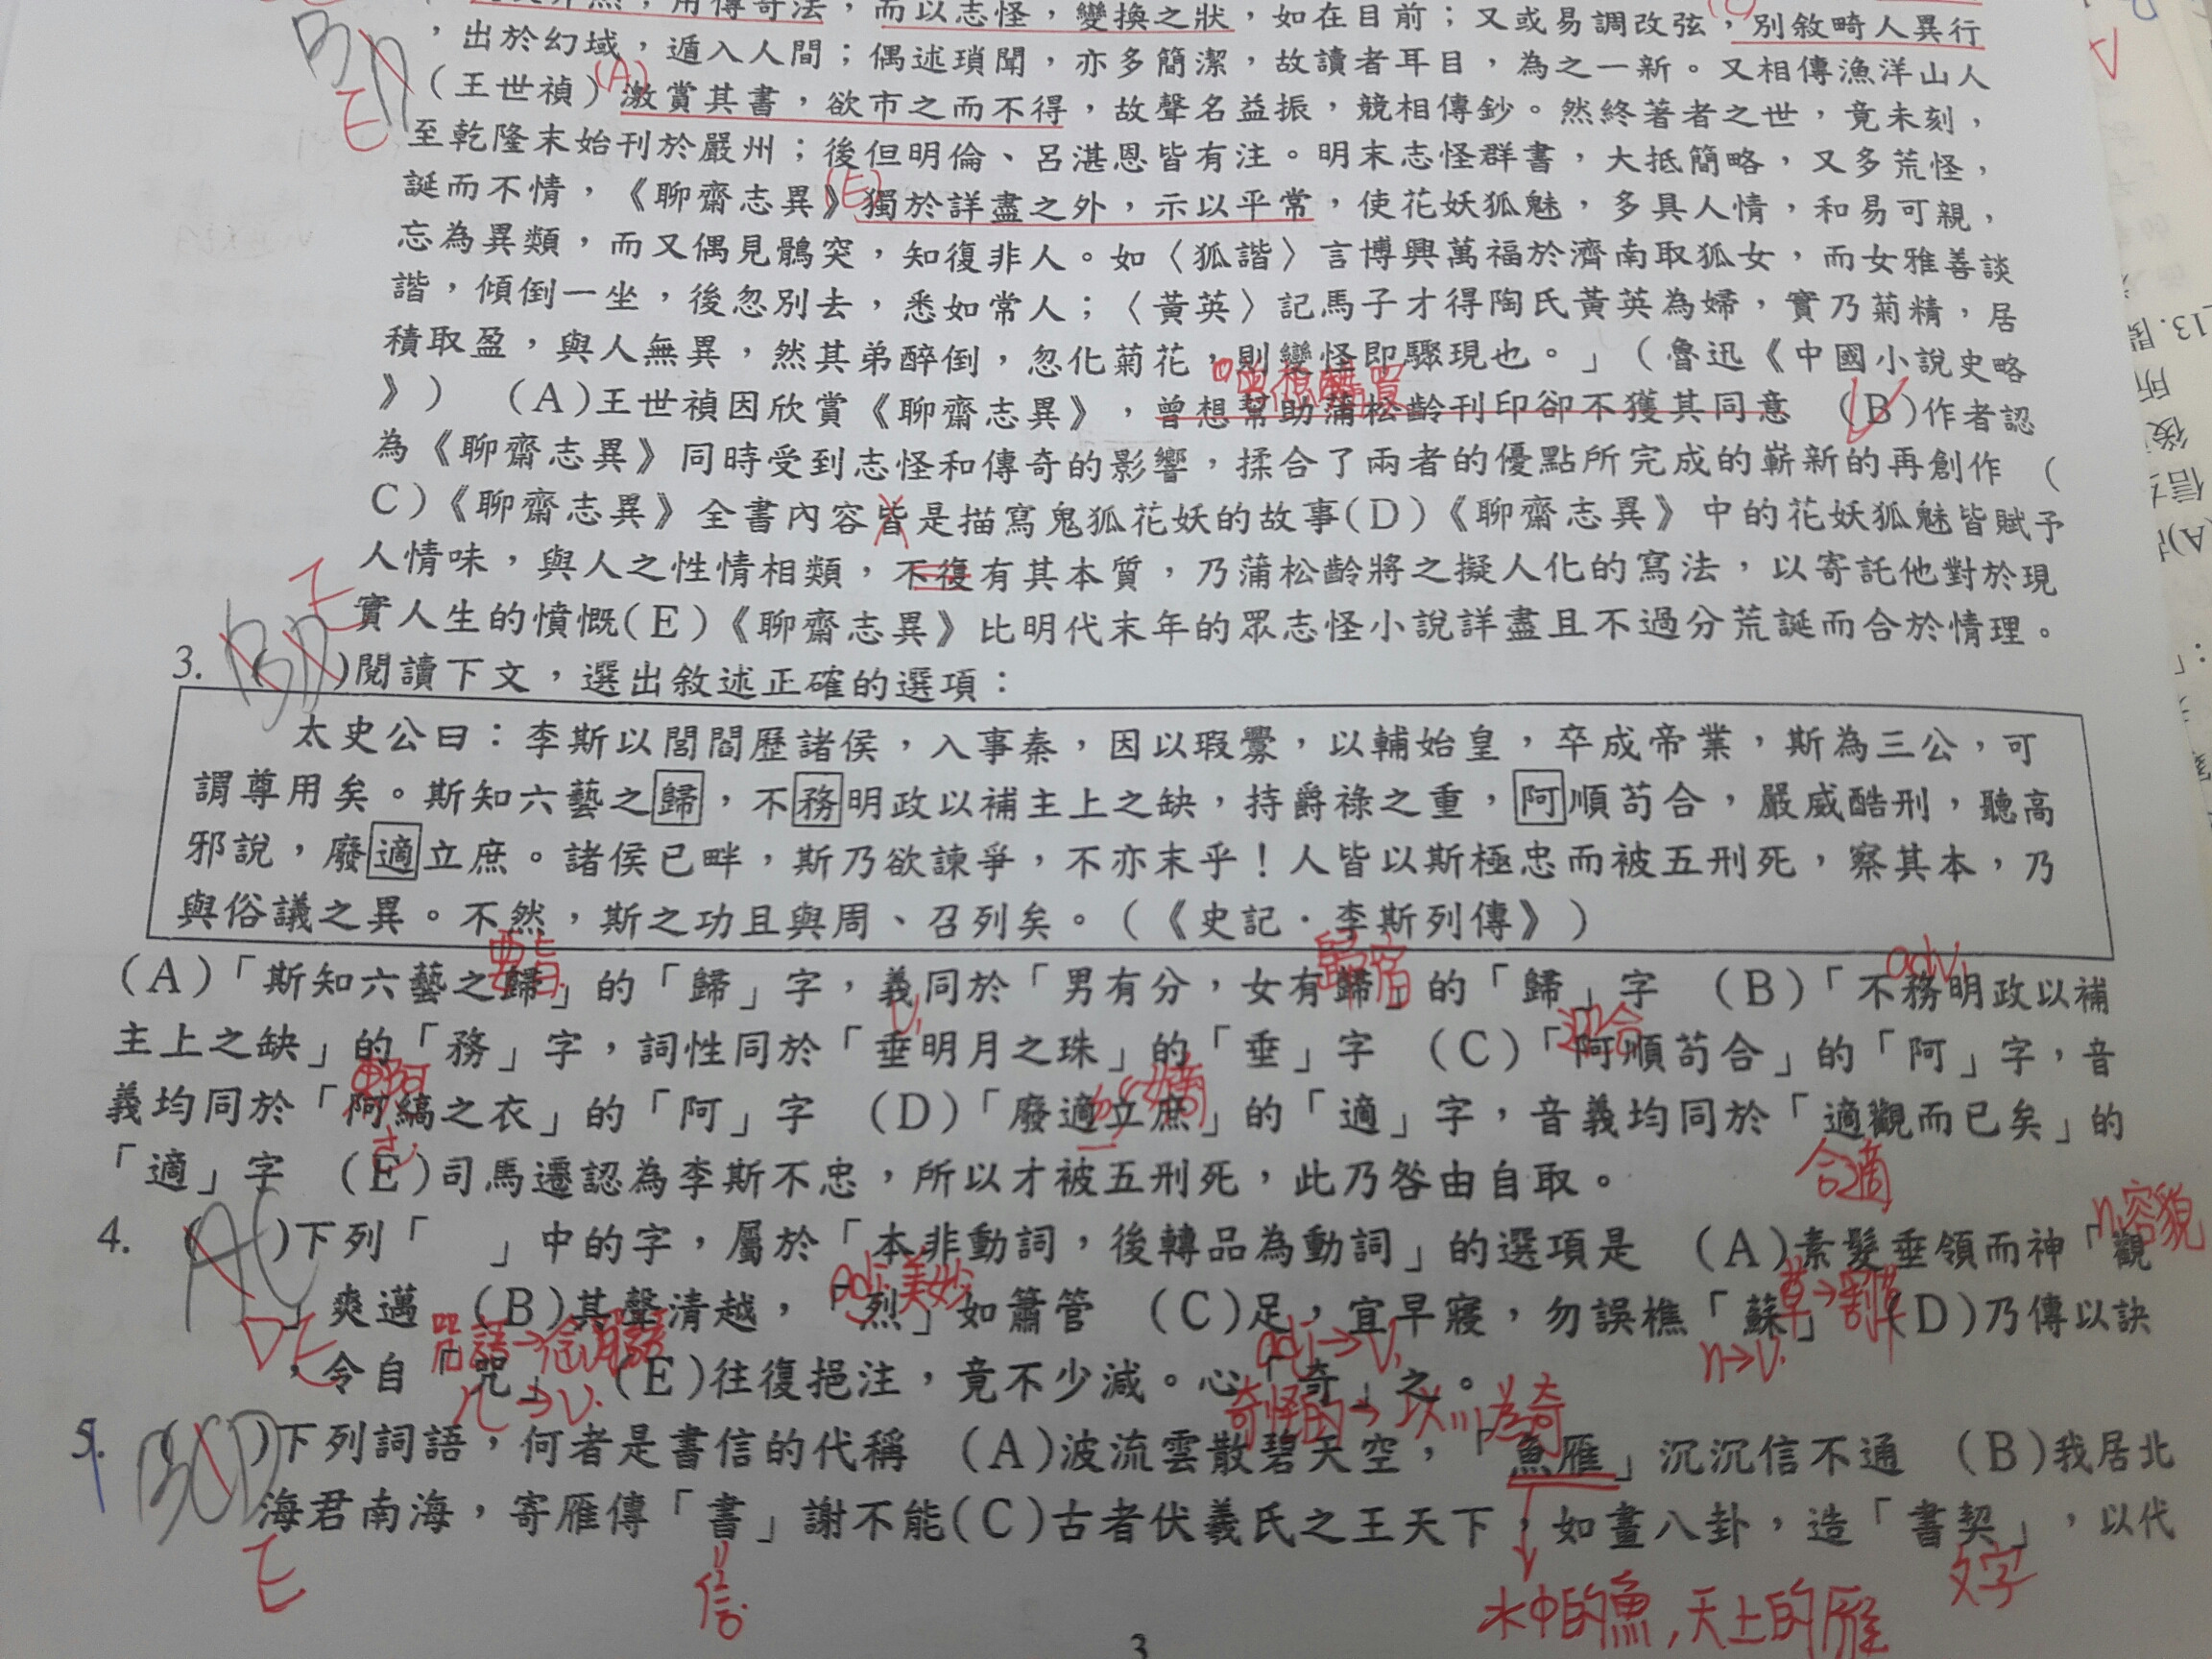 用傳奇法，而以志怪，變換之狀，如在目前；又或易調改弦，別敘畸人異行
，出於幻域，遁入人間；偶述瑣聞，亦多簡潔，故讀者耳目，為之一新。又相傳漁洋山人
E
(A)
（王世禎）激賞其書，欲市之而不得，故聲名益振，競相傳鈔。然終著者之世，竟未刻，
至乾隆末始刊於嚴州；後但明倫、呂湛恩皆有注。明末志怪群書，大抵簡略，又多荒怪，
(E)
誕而不情，《聊齋志異》獨於詳盡之外，示以平常，使花妖狐魅，多具人情，和易可親，
忘為異類，而又偶見鶻突，知復非人。如〈狐諧〉言博興萬福於濟南取狐女，而女雅善談
諧，傾倒一坐，後忽別去，悉如常人；〈黃英〉記馬子才得陶氏黃英為婦，實乃菊精，居
積取盈，與人無異，然其弟醉倒，忽化菊花，則變怪即驟現也。」（魯迅《中國小說史略
》）　(A)王世禎因欣賞《聊齋志異》，曾想幫助蒲松齡刊印卻不獲其同意　(B)作者認
為《聊齋志異》同時受到志怪和傳奇的影響，揉合了兩者的優點所完成的嶄新的再創作　(
C)《聊齋志異》全書內容皆是描寫鬼狐花妖的故事(D)《聊齋志異》中的花妖狐魅皆賦予
人情味，與人之性情相類，不復有其本質，乃蒲松齡將之擬人化的寫法，以寄託他對於現
實人生的憤慨(E)《聊齋志異》比明代末年的眾志怪小說詳盡且不過分荒誕而合於情理。
E
BD
3. (　)閱讀下文，選出敘述正確的選項：
太史公曰：李斯以閭閻歷諸侯，入事秦，因以瑕釁，以輔始皇，卒成帝業，斯為三公，可
謂尊用矣。斯知六藝之歸，不務明政以補主上之缺，持爵祿之重，阿順苟合，嚴威酷刑，聽高
邪說，廢適立庶。諸侯已畔，斯乃欲諫爭，不亦末乎！人皆以斯極忠而被五刑死，察其本，乃
與俗議之異。不然，斯之功且與周、召列矣。（《史記·李斯列傳》）
要旨
歸宿
adv.
(A)「斯知六藝之歸」的「歸」字，義同於「男有分，女有歸」的「歸」字　(B)「不務明政以補
v.
迎合
主上之缺」的「務」字，詞性同於「垂明月之珠」的「垂」字　(C)「阿順苟合」的「阿」字，音
義均同於「阿縞之衣」的「阿」字　(D)「廢適立庶」的「適」字，音義均同於「適觀而已矣」的
「適」字　(E)司馬遷認為李斯不忠，所以才被五刑死，此乃咎由自取。
合適
n.容貌
AC
4. (　)下列「　」中的字，屬於「本非動詞，後轉品為動詞」的選項是　(A)素髮垂領而神「觀
adj.美妙
草→割草
」爽邁　(B)其聲清越，「烈」如簫管　(C)足，宜早寢，勿誤樵「蘇」　(D)乃傳以訣
DE
咒語→念咒語
adj→v.
n→v.
，令自「咒」　(E)往復挹注，竟不少減。心「奇」之。
n→v.
奇怪的→以…為奇
BCD
5. (　)下列詞語，何者是書信的代稱　(A)波流雲散碧天空，「魚雁」沉沉信不通　(B)我居北
海君南海，寄雁傳「書」謝不能(C)古者伏羲氏之王天下，如畫八卦，造「書契」，以代
E
信
文字
水中的魚,天上的雁
3